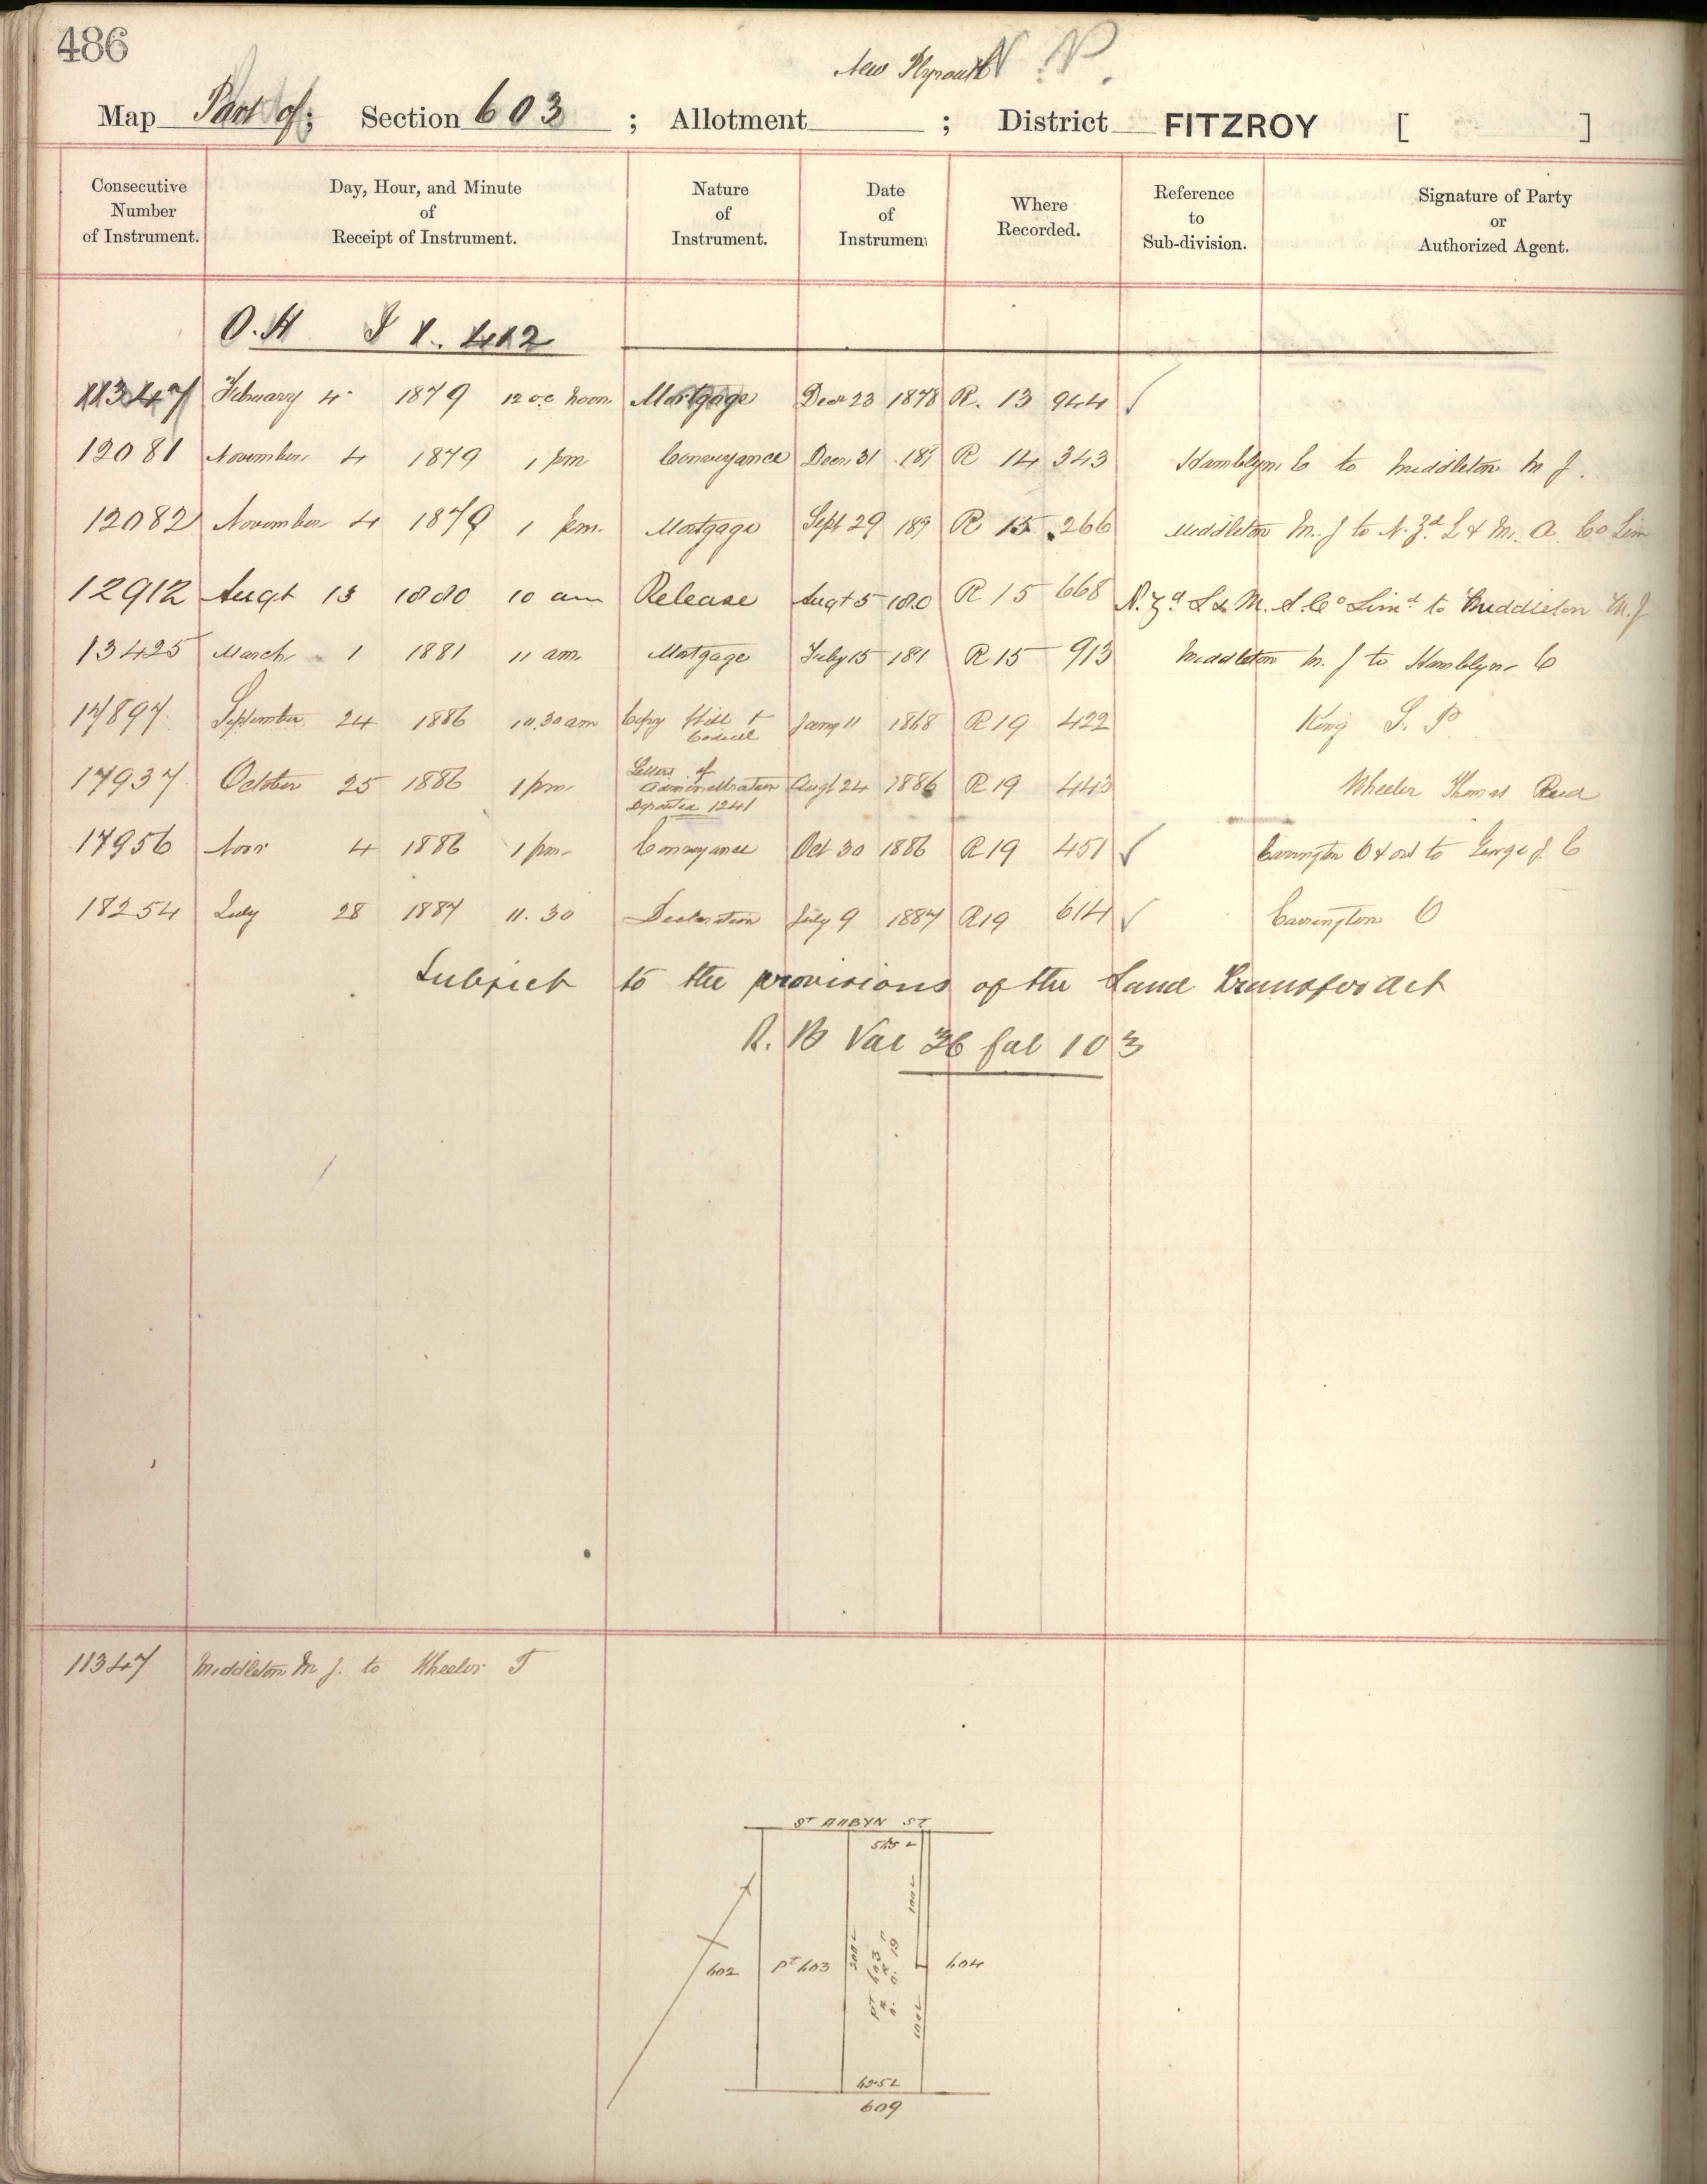 486
New Plymouth N. P.
Map Part of; Section 603 ; Allotment ; District FITZROY [ ]
Consecutive Number of Instrument. Day, Hour, and Minute of Receipt of Instrument. Nature of Instrument. Date of Instrument Where Recorded. Reference to Sub-division. Signature of Party or Authorized Agent.
O.H 412
11347 February 4 1879 12 oc noon Mortgage Decr 23 1878 R. 13 944 ✓
12081 November 4 1879 1 pm Conveyance Decr 31 187 R 14 343 Hamblyn C to Middleton M J.
12082 November 4 1879 1 pm. Mortgage Sept 29 189 R 15 266 Middleton M. J to N. Zd L & M. A. Co Lim
12912 Augt 13 1880 10 am Release Augt 5 1880 R 15 668 N. Zd L & M. A. Co Limd to Middleton M. J
13425 March 1 1881 11 am Mortgage July 15 181 R 15 913 Middleton M. J to Hamblyn C
17897 September 24 1886 10.30 am Copy Will & Codicil Jany 11 1868 R 19 422 King S. P.
17937 October 25 1886 1 pm Letters of Administration Deposited 1241 Augt 24 1886 R 19 443 Wheeler Thomas Reed
17956 Novr 4 1886 1 pm Conveyance Oct 30 1886 R 19 451 ✓ Carrington O & ors to George J. C
18254 July 28 1887 11.30 Declaration July 9 1887 R 19 614 ✓ Carrington O
Subject to the provisions of the Land Transfer Act
R. B Vol 36 fol 103
11347 Middleton M J. to Wheeler T
ST AUBYN ST
602 PT 603 PT 603 604
609